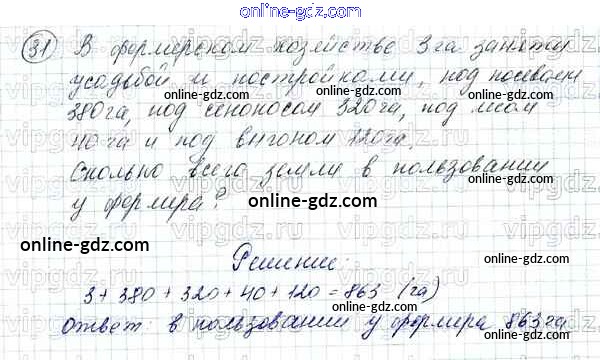 online-gdz.com
31 В фермерском хозяйстве 3 га заняты
online-gdz.com
усадьбой и постройками, под посевами
online-gdz.com
380 га, под сенокосом 320 га, под лесом
online-gdz.com
40 га и под выгоном 120 га.
Сколько всего земли в пользовании
online-gdz.com
у фермера?
online-gdz.com
online-gdz.com
Решение:
online-gdz.com
3 + 380 + 320 + 40 + 120 = 863 (га)
online-gdz.com
Ответ: в пользовании у фермера 863 га
online-gdz.com